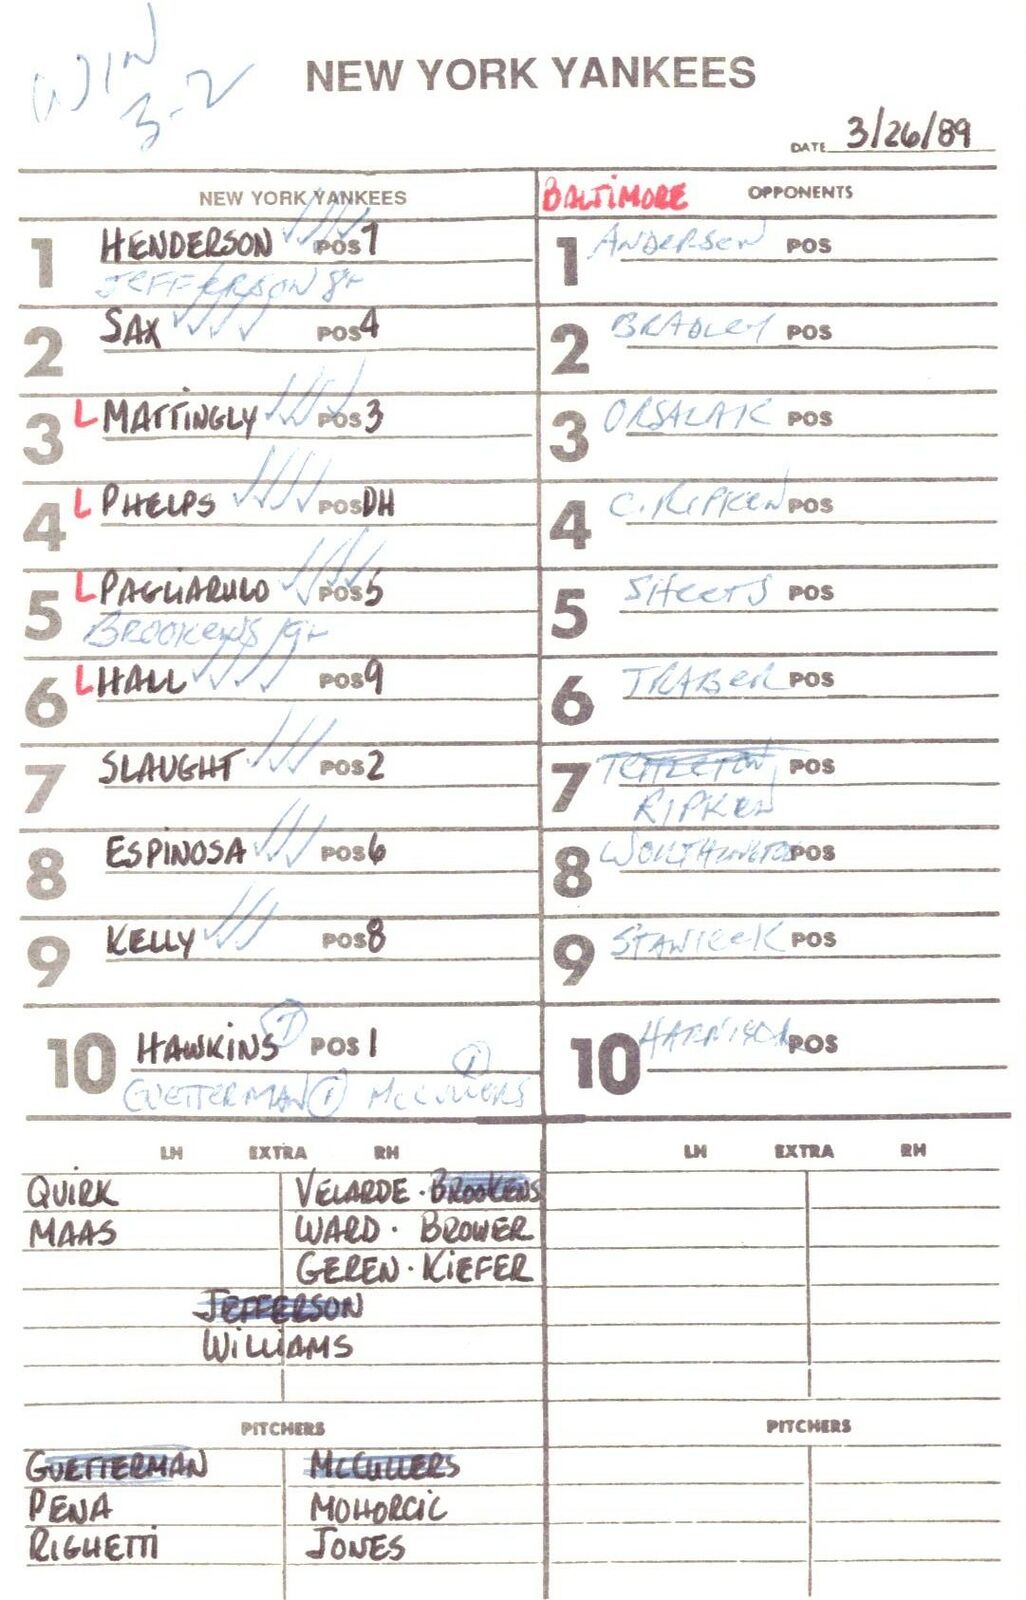 WIN
3-2
NEW YORK YANKEES
DATE 3/26/89
NEW YORK YANKEES BALTIMORE OPPONENTS
1 HENDERSON POS 7 1 ANDERSON POS
JEFFERSON 8+
2 SAX POS 4 2 BRADLEY POS
3 L MATTINGLY POS 3 3 ORSALAK POS
4 L PHELPS POS DH 4 C. RIPKEN POS
5 L PAGLIARULO POS 5 5 SHEETS POS
BROOKENS 9+
6 L HALL POS 9 6 TRABER POS
7 SLAUGHT POS 2 7 POS
RIPKEN
8 ESPINOSA POS 6 8 WORTHINGTON POS
9 KELLY POS 8 9 POS
10 HAWKINS POS 1 10 POS
GUETTERMAN McCULLERS
LH EXTRA RH LH EXTRA RH
QUIRK VELARDE · BROOKENS
MAAS WARD · BROWER
GEREN · KIEFER
JEFFERSON
WILLIAMS
PITCHERS PITCHERS
GUETTERMAN McCULLERS
PENA MOHORCIC
RIGHETTI JONES